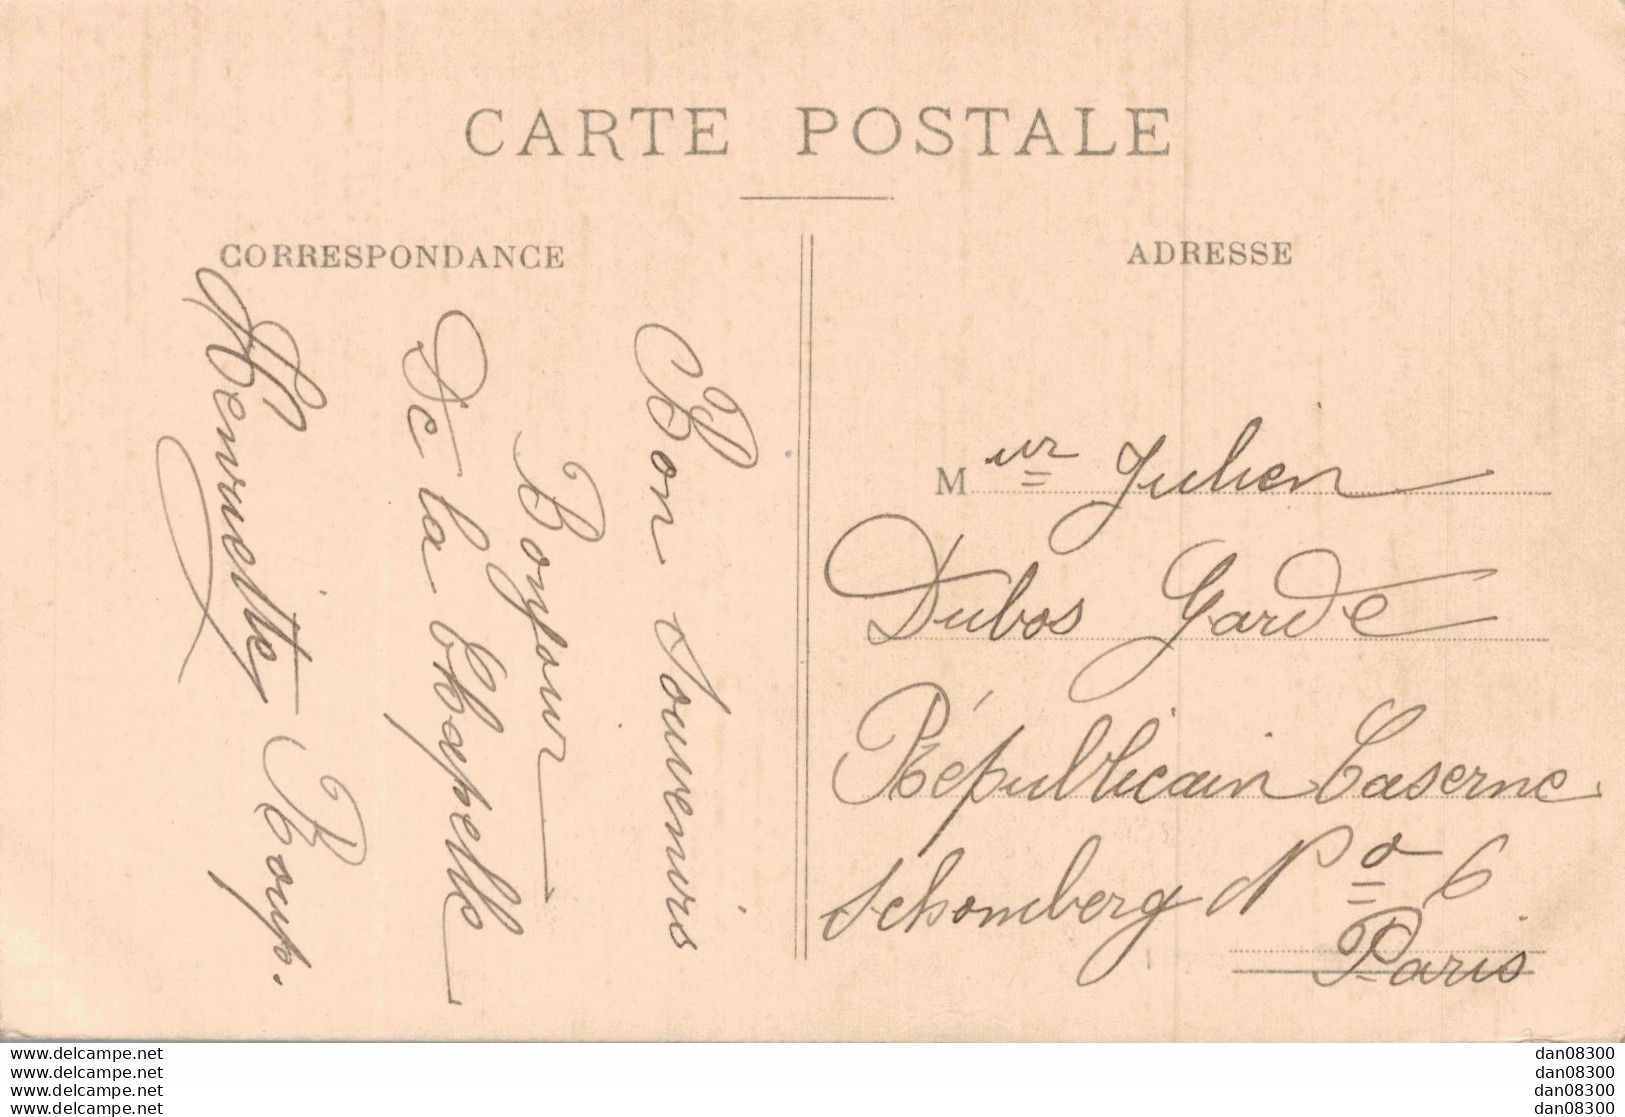 CARTE POSTALE
CORRESPONDANCE
Bon Souvenirs
Bonjour
De la Chapelle
Henriette Roup.
ADRESSE
Mur Julien
Dubos Garde
Républicain Caserne
Schomberg No 6
Paris
www.delcampe.net
www.delcampe.net
www.delcampe.net
www.delcampe.net
dan08300
dan08300
dan08300
dan08300